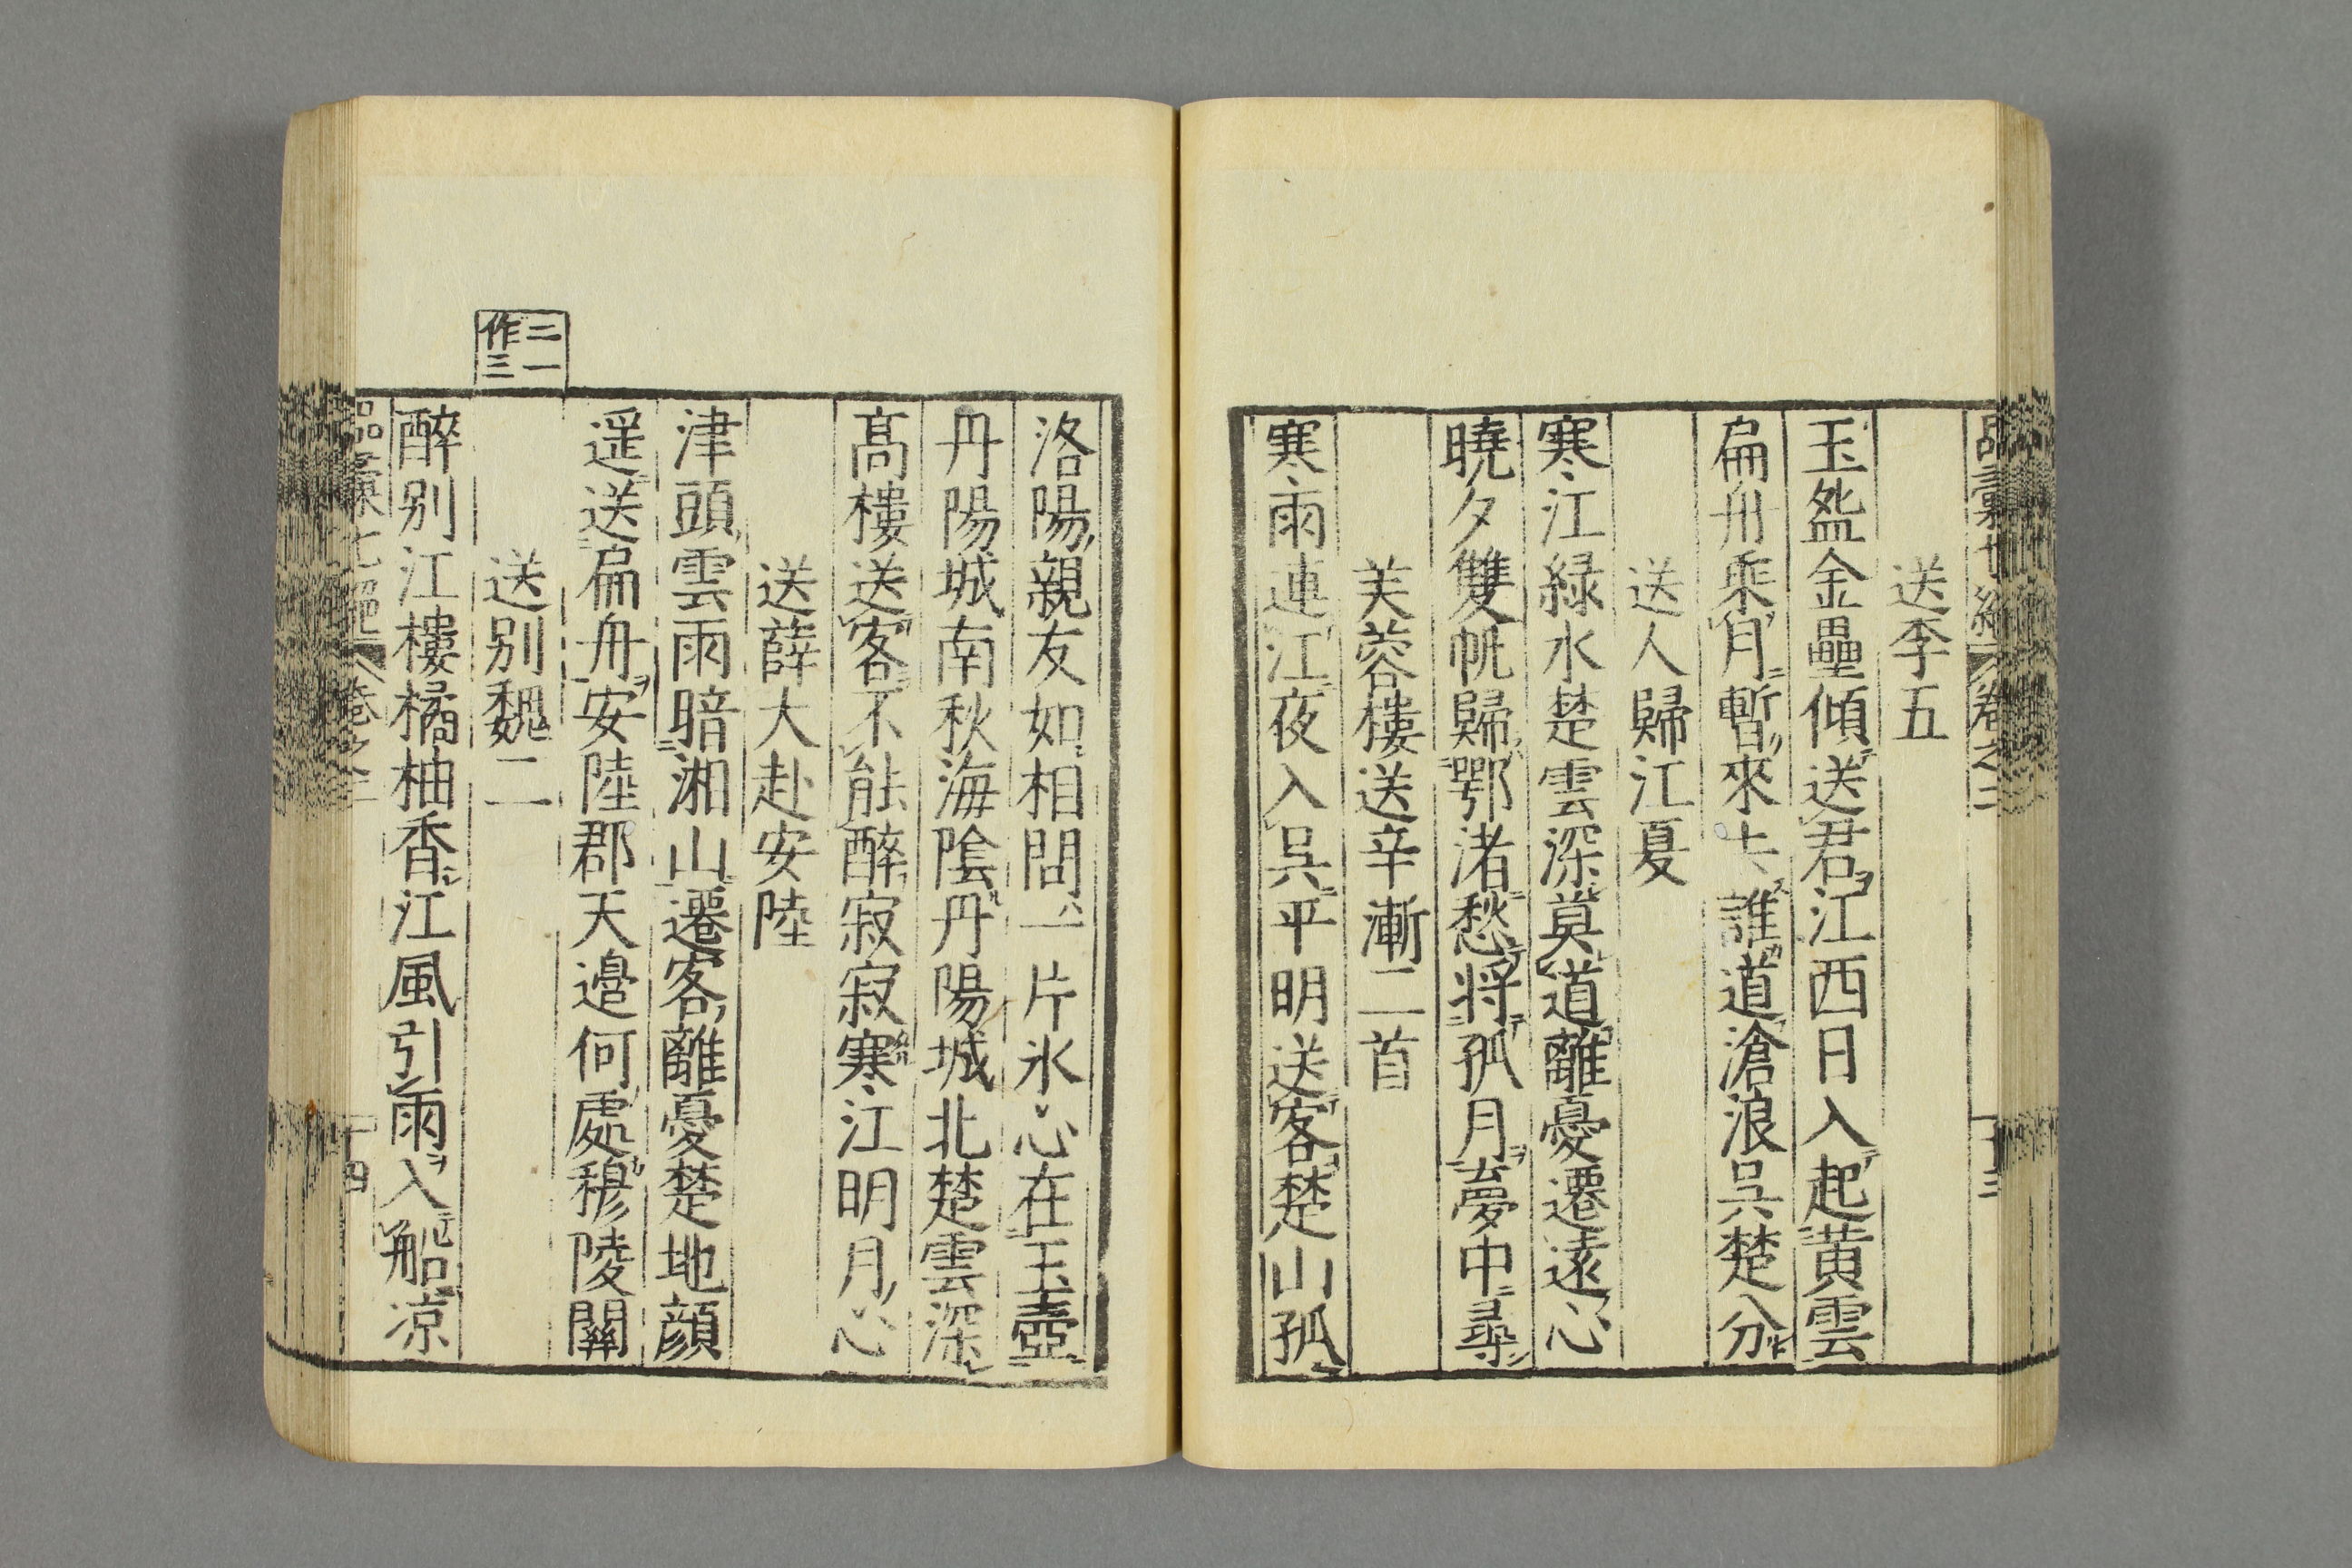 送李五
玉盌金罍傾送君江西日入起黄雲
扁舟乘月暫來去誰道滄浪呉楚分
送人歸江夏
寒江緑水楚雲深莫道離憂遷遠心
曉夕雙帆歸鄂渚愁将孤月夢中尋
芙蓉樓送辛漸二首
寒雨連江夜入呉平明送客楚山孤
洛陽親友如相問一片氷心在玉壺
丹陽城南秋海陰丹陽城北楚雲深
髙樓送客不能醉寂寂寒江明月心
送薛大赴安陸
津頭雲雨暗湘山遷客離憂楚地顔
遥送扁舟安陸郡天邉何處穆陵關
二一
作三
送別魏二
醉別江樓橘柚香江風引雨入船凉
品彙七絶 卷之二 十四